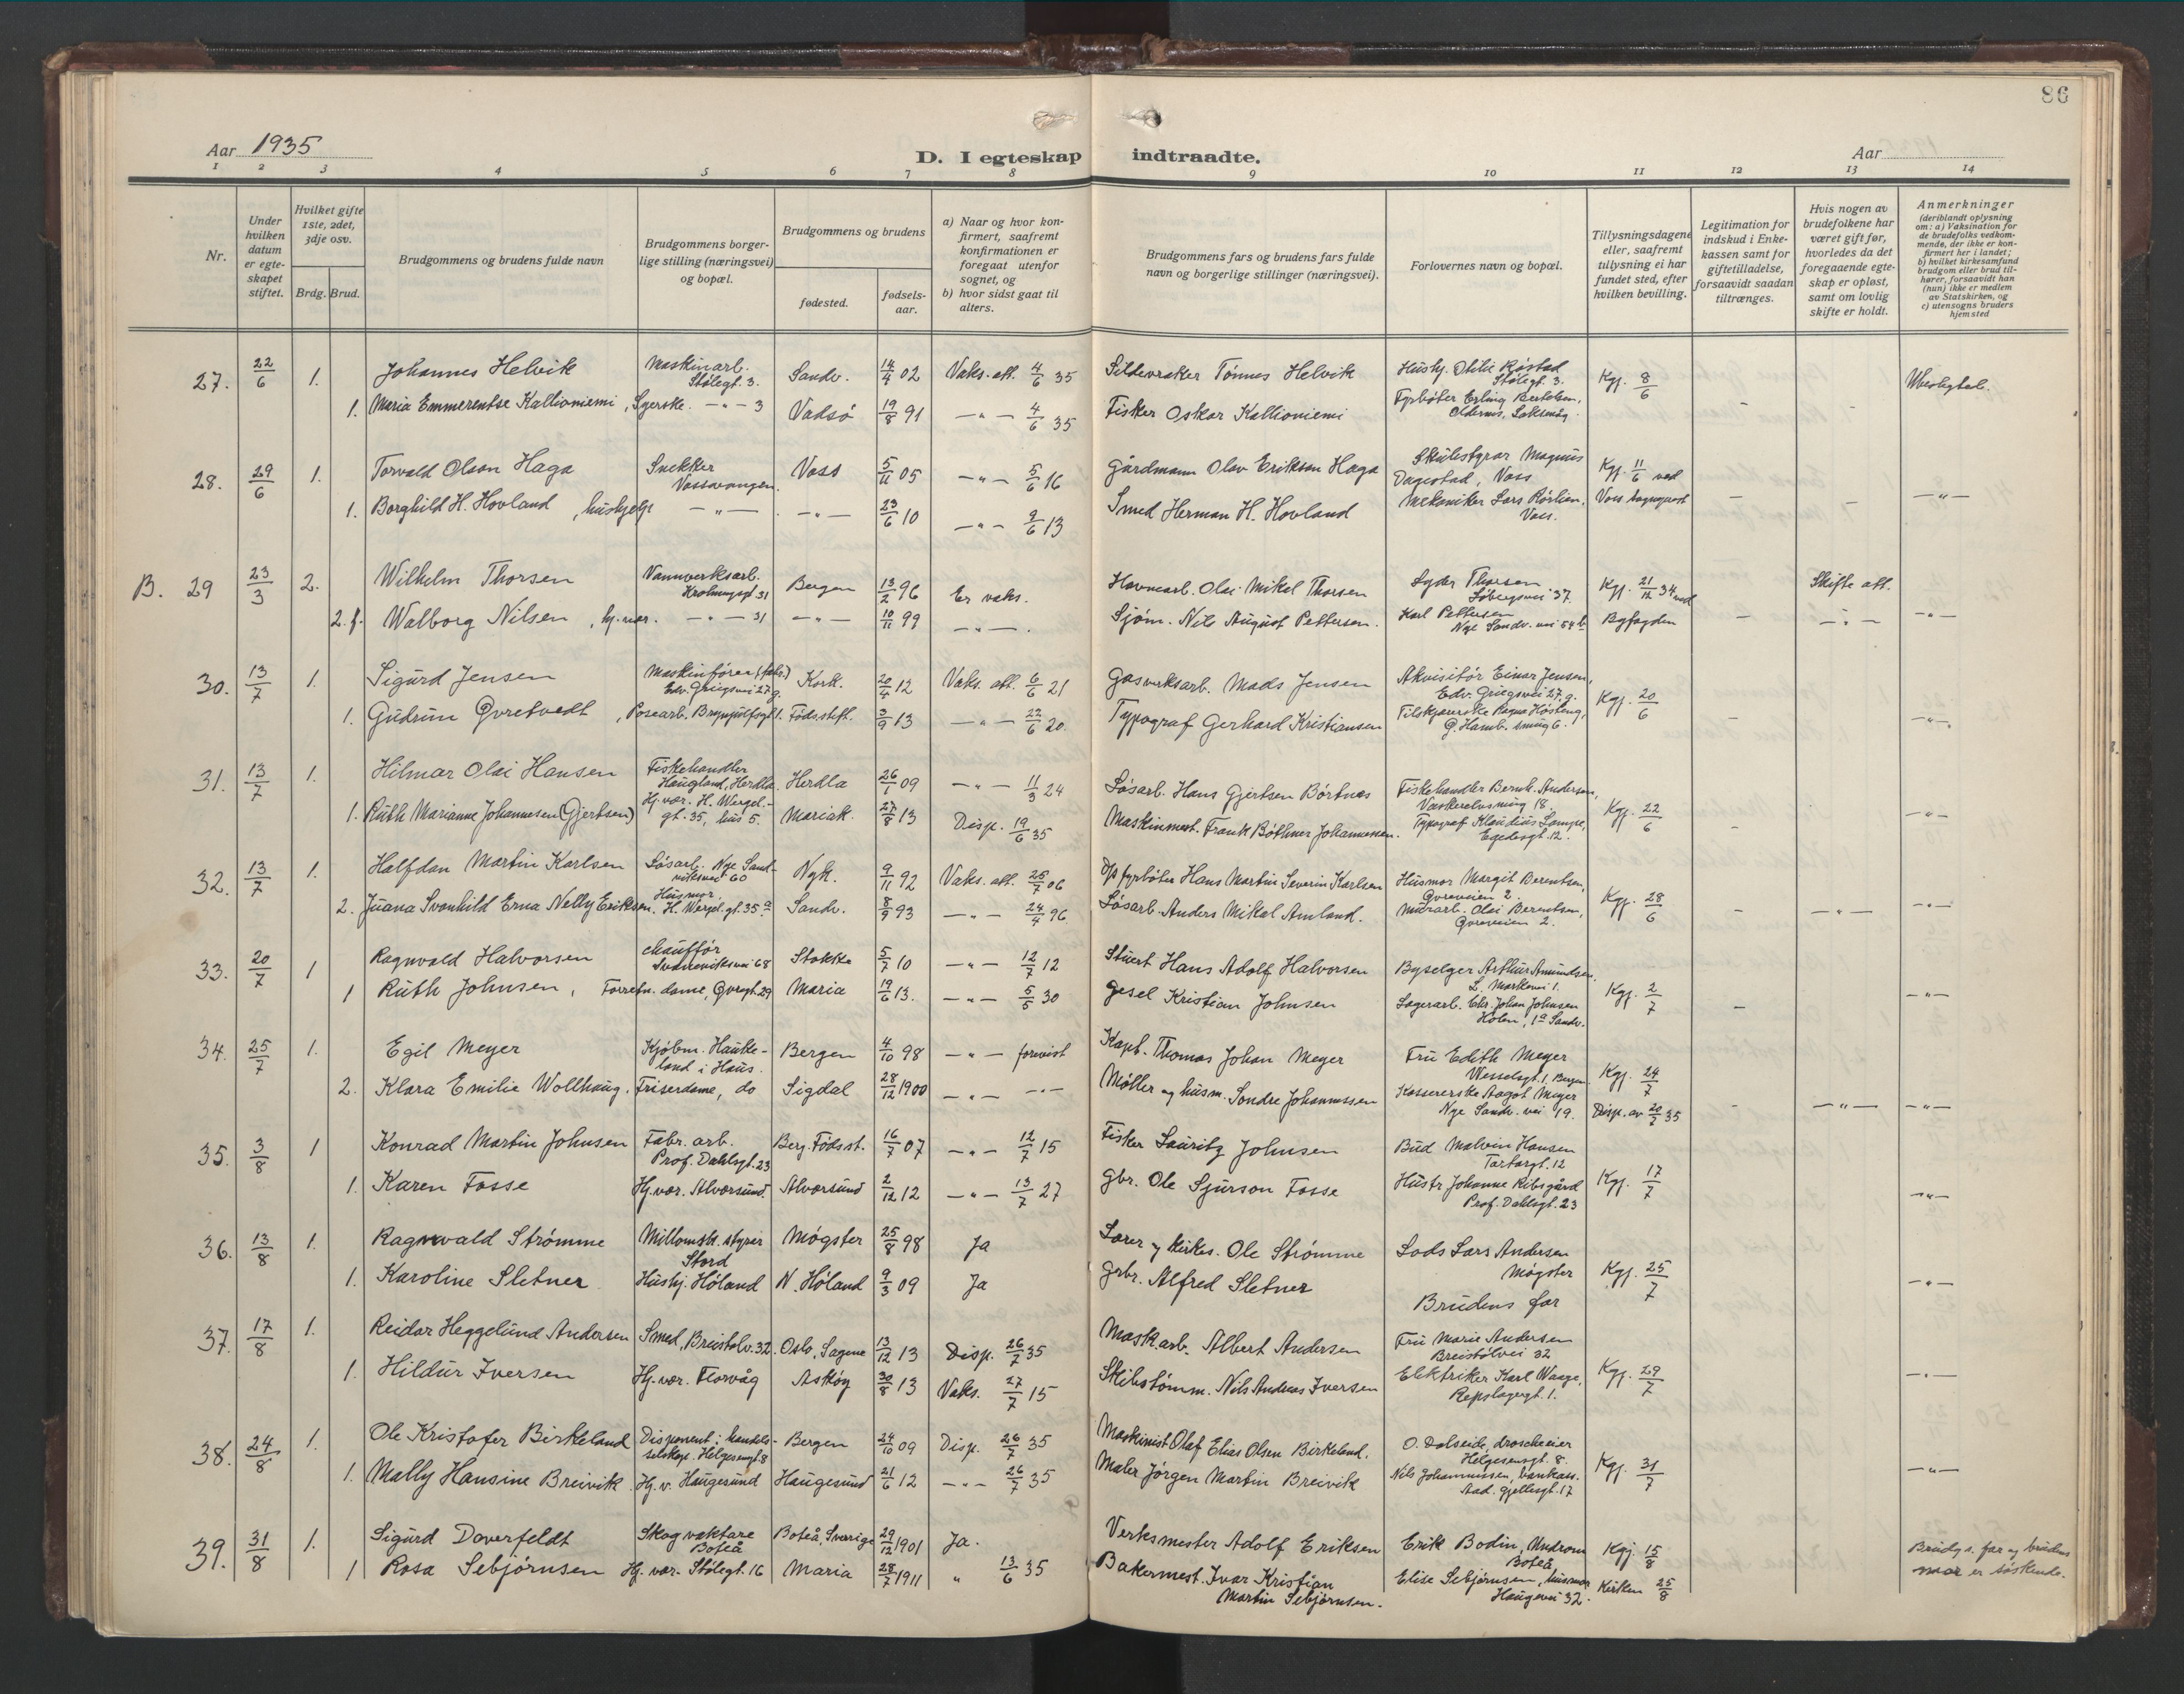 86
Aar 1935
D. I egteskap indtraadte.
Aar
1 2 3 4 5 6 7 8 9 10 11 12 13 14
Nr.
Under hvilken datum er egteskapet stiftet.
Hvilket gifte 1ste, 2det, 3dje osv.
Brdg. Brud.
Brudgommens og brudens fulde navn
Brudgommens borgerlige stilling (næringsvei) og bopæl.
Brudgommens og brudens
fødested.
fødselsaar.
a) Naar og hvor konfirmert, saafremt konfirmationen er foregaat utenfor sognet, og
b) hvor sidst gaat til alters.
Brudgommens fars og brudens fars fulde navn og borgerlige stillinger (næringsvei).
Forlovernes navn og bopæl.
Tillysningsdagene eller, saafremt tillysning ei har fundet sted, efter hvilken bevilling.
Legitimation for indskud i Enkekassen samt for giftetilladelse, forsaavidt saadan tiltrænges.
Hvis nogen av brudefolkene har været gift før, hvorledes da det foregaaende egteskap er opløst, samt om lovlig skifte er holdt.
Anmerkninger (deriblandt oplysning om: a) Vaksination for de brudefolks vedkommende, der ikke er konfirmert her i landet; b) hvilket kirkesamfund brudgom eller brud tilhører, forsaavidt han (hun) ikke er medlem av Statskirken, og c) utensogns bruders hjemsted
27. 22/6 1. Johannes Helvik Maskinarb. Stølegt. 3. Sandv. 14/4 02 Vaks. att. 4/6 35 Sildevraker Tønnes Helvik Hushj. Otilie Røstad Stølegt. 3. Kgj. 8/6
1. Maria Emmerentse Kallioniemi, Syerske. —"— 3 Vadsø 19/8 91 —"— 4/6 35 Fisker Oskar Kallioniemi Fyrbøter Erling Bertelsen,
28. 29/6 1. Torvald Olson Haga Snekker Vossavangen Voss 5/11 05 —"— 5/6 16 Gårdmann Olav Erikson Haga Skulestyrar Magnus Dagestad, Voss Kgj. 11/6 ved
1. Borghild H. Hovland, hushjelp —"— —"— 23/6 10 —"— 9/6 13 Smed Herman H. Hovland Mekaniker Lars Rørlien, Voss. Voss Sogneprest — — —"—
B. 29 23/3 2. Wilhelm Thorsen Vannverksarb. Krohnengt. 31 Bergen 13/2 96 Er vaks. Havnearb. Olai Mikal Thorsen Lyder Thorsen Søbergsvei 37. Kgj. 21/12 34 ved Skifte att.
2. f. Walborg Nilsen, hj.vær. —"— 31 —"— 10/11 99 —"—. Sjøm. Nils August Pettersen. Karl Pettersen Nye Sandv. vei 54 b Byfogden — —"— —"—
30. 13/7 1. Sigurd Jensen Maskinfører (fabr.) Edv. Griegsvei 27 g. Kork. 20/4 12 Vaks. att. 6/6 21 Gasverksarb. Mads Jensen Akvisitør Einar Jensen, Edv. Griegsvei 27 g. Kgj. 20/6
1. Gudrun Qvretvedt, Posearb. Brynjulfsgt 1. Føds.stift. 3/9 13 —"— 22/6 20. Typograf Gerhard Kristiansen Tilskjærerske Ragna — —"—
31. 13/7 1. Hilmar Olai Hansen Fiskehandler Haugland, Herdla Herdla 26/1 09 —"— 11/3 24 Løsarb. Hans Gjertsen Børtnes Fiskehandler Bernh. Andersen, Vaskerelvsmug 18. Kgj. 22/6
1. Ruth Marianne Johannesen (Gjertsen) Hj. vær. H. Wergel.gt. 35, hus 5. Mariak. 27/8 13 Disp. 19/6 35 Maskinmest. Frank Bøthner Johannesen. Typograf Klaudius Lampe, Egedesgt. 12. — —"—
32. 13/7 1. Halfdan Martin Karlsen Løsarb. Nye Sandviksvei 60 Nyk. 9/11 92 Vaks. att. 25/7 06 D/s fyrbøter Hans Martin Severin Karlsen Husmor Margit Berentsen, Qvreveien 2. Kgj. 28/6
2. Juana Svanhild Erna Nelly Eriksen. Husmor H. Wergel. gt. 35 a Sandv. 8/9 93 —"— 24/4 96 Løsarb. Anders Mikal Amland. Murarb. Olai Berentsen, Qvreveien 2. — —"— —"—
33. 20/7 1 Ragnvald Halvorsen chauffør Sandviksvei 68 Stokke 5/7 10 —"— 12/7 12 Stuert Hans Adolf Halvorsen Byselger Arthur Amundsen, L. Markevei 1. Kgj. 2/7
1 Ruth Johnsen, Forretn. dame, Qvregt. 29 Maria 19/6 13. —"— 5/5 30 Gesel Kristian Johnsen Lagerarb. Chr. Johan Johnsen Holen, 1 a Sandv. — —"—
34. 25/7 1. Egil Meyer Kjøbm. Haukeland i Haus. Bergen 4/10 98 —"— forevist Kapt. Thomas Johan Meyer Fru Edith Meyer Wesselsgt. 1, Bergen Kgj. 24/7
2. Klara Emilie Wollhaug. Friserdame, do Sigdal 28/12 1900 —"— —"— Møller og husm. Sondre Johannessen Kassererske Aagot Meyer Nye Sandv. vei 19. Disp. av 20/7 35 — —"— —"—
35. 3/8 1 Konrad Martin Johnsen Fabr. arb. Prof. Dahlsgt. 23 Berg. Fødsst. 16/7 07 —"— 12/7 15 Fisker Lauritz Johnsen Bud Malvin Hansen Tartargt. 12 Kgj. 17/7
1. Karen Fosse Hj. vær. Alversund. Alversund 2/12 12 —"— 13/7 27 Gbr. Ole Sjurson Fosse Hustr Johanne Ribsgård Prof. Dahlsgt. 23 —"—
36. 13/8 1. Ragnvald Strømme Millomsk. styrer Stord Møgster 25/8 98 Ja Lærer og kirkes. Ole Strømme Lods Lars Andersen Møgster Kgj. 25/7
1. Karoline Sletner Hushj. Høland N. Høland 9/3 09 Ja Gbr. Alfred Sletner Brudens far —"—
37. 17/8 1. Reidar Heggelund Andersen Smed, Breistølv. 32. Oslo, Sagene 13/12 13 Disp. 26/7 35 Mask.arb. Albert Andersen Fru Marie Andersen Breistølvei 32 Kgj. 29/7
1. Hildur Iversen Hj. vær. Florvåg Askøy 30/8 13 Vaks. 27/7 15 Skibstømm. Nils Andreas Iversen Elektriker Karl Waage, Repslagergt. 1. —"—
38. 24/8 1. Ole Kristofer Birkeland Disponent i handelsselskap. Helgesensgt. 8 Bergen 24/10 09 Disp. 26/7 35 Maskinist Olaf Elias Olsen Birkeland. O. Dalseide, droscheeier Helgesensgt. 8. Kgj. 31/7
1. Mally Hansine Breivik Hj. v. Haugesund Haugesund 21/6 12 —"— 26/7 35 Maler Jørgen Martin Breivik Nils Johannessen, bankass. Aad. Gjellesgt. 17 —"—
39. 31/8 1. Sigurd Daverfeldt Skogvaktare Boteå Boteå, Sverige 29/12 1901 Ja. Verksmester Adolf Eriksen Erik Bodin, Undrom Boteå Kgj. 15/8 Brudg.s. far og brudens
1 Rosa Sebjørnsen Hj. vær. Stølegt. 16 Maria 28/7 1911 " 13/6 35 Bakermest. Ivar Kristian Martin Sebjørnsen. Elise Sebjørnsen, husmor Haugevei 32. Kirken 25/8 mor er søskende.